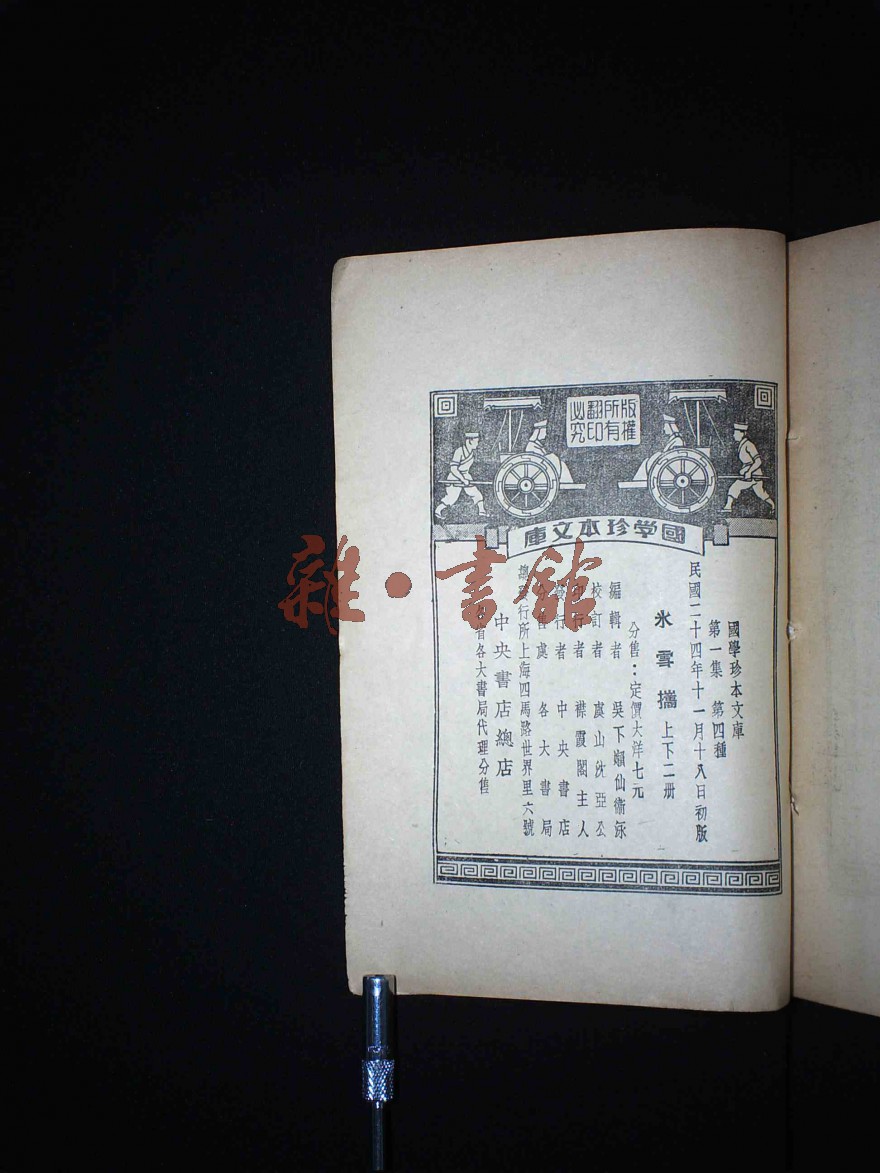 版權
所有
翻印
必究
國學珍本文庫
國學珍本文庫
第一集 第四種
民國二十四年十一月十八日初版
氷雪攜 上下二册
分售：定價大洋七元
編輯者 吳下
校訂者 虞山沈亞公
印行者 襟霞閣主人
發行者 中央書店
分售處 各大書局
總發行所上海四馬路世界里六號
中央書店總店
各省各大書局代理分售
雜·書館